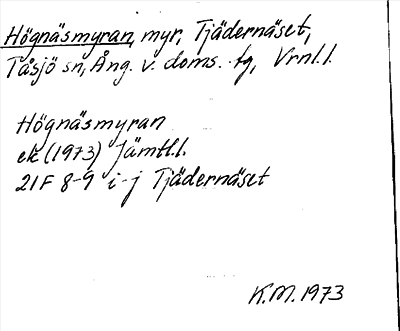 Högnäsmyran, myr, Tjädernäset,
Tåsjö sn, Ång. v. doms. tg, Vrnl.l.
Högnäsmyran
ek (1973) Jämtl.l.
21F 8-9 i-j Tjädernäset
K.M. 1973